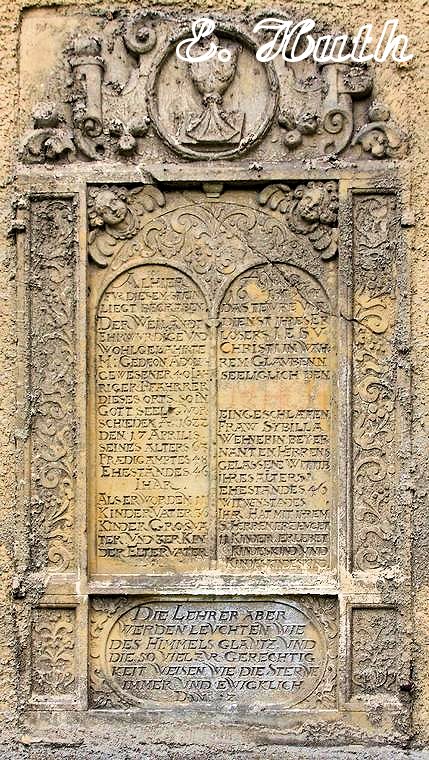 E. Huth
ALHIER
FVR DIESEM STEIN
LIEGT BEGRABEN
DER WEILANDT
EHRWVRDIGE VND
WOHLGELAHRTE
GEDEON
GEWESENER 40 IÄH
RIGER PFAHRRER
DIESES ORTS SO IN
GOTT SEELIG VOR
SCHIEDEN Aº 1622
DEN 17 APRILIS
SEINES ALTERS
PREDIGAMTS
EHESTANDES 46
IHAR
ALS ER WORDEN 11
KINDER VATER 30
KINDER GROSVA
TER VND 3 ER KIN
DER ELTERVATER
16
DAS TEWRE
DIENST IHRES
ERLÖSERS IESV
CHRISTI IN WAH
REM GLAVBEN
SEELIGLICH DEN
EINGESCHLAFFEN
FRAW SYBILLA
WEHNERIN BEY ER
NANTEN HERREN
GELASSENE WITTIB
IHRES ALTERS
EHESTANDES 46
WITWENSTANDES
IHR MIT IHREM
HERREN ERZEVGET
11 KINDER ERLEBET
KINDESKIND VND
KINDES KINDES
DIE LEHRER ABER
WERDEN LEVCHTEN WIE
DES HIMMELS GLANTZ VND
DIE SO VIEL ZVR GERECHTIG
KEIT WEISEN WIE DIE STERNE
IMMER VND EWIGKLICH
DAN